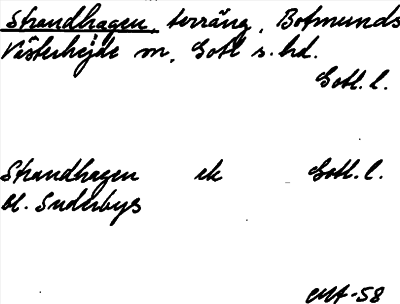 Strandhagen, terräng, Botmunds
Västerhejde sn, Gotl s. hd.
Gotl. l.
Strandhagen ek Gotl. l.
bl. Suderbys